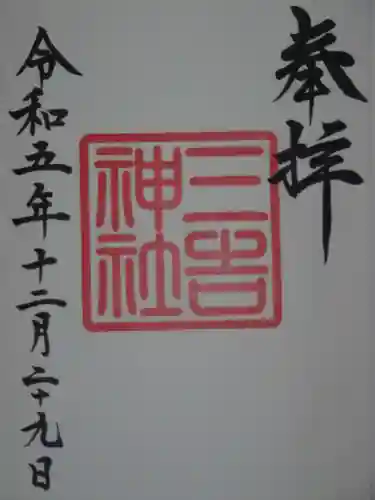 奉拝
三吉神社
令和五年十二月二十九日